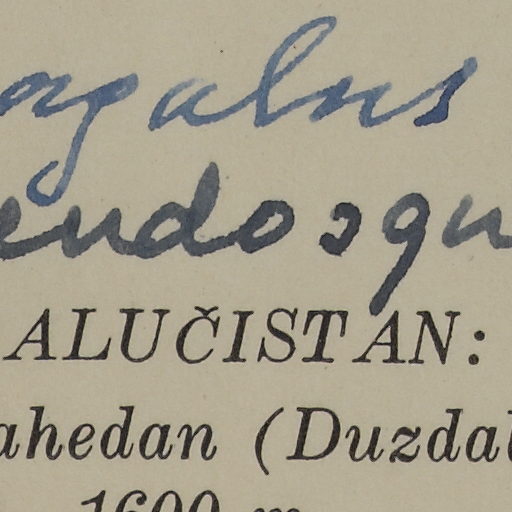 agalus
eudosqu
ALUČISTAN:
ahedan (Duzdal
1600 m